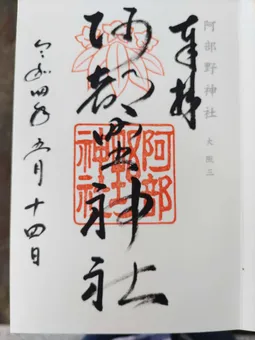 阿部野神社
奉拝
阿部野神社
阿部野神社
令和四年五月十四日